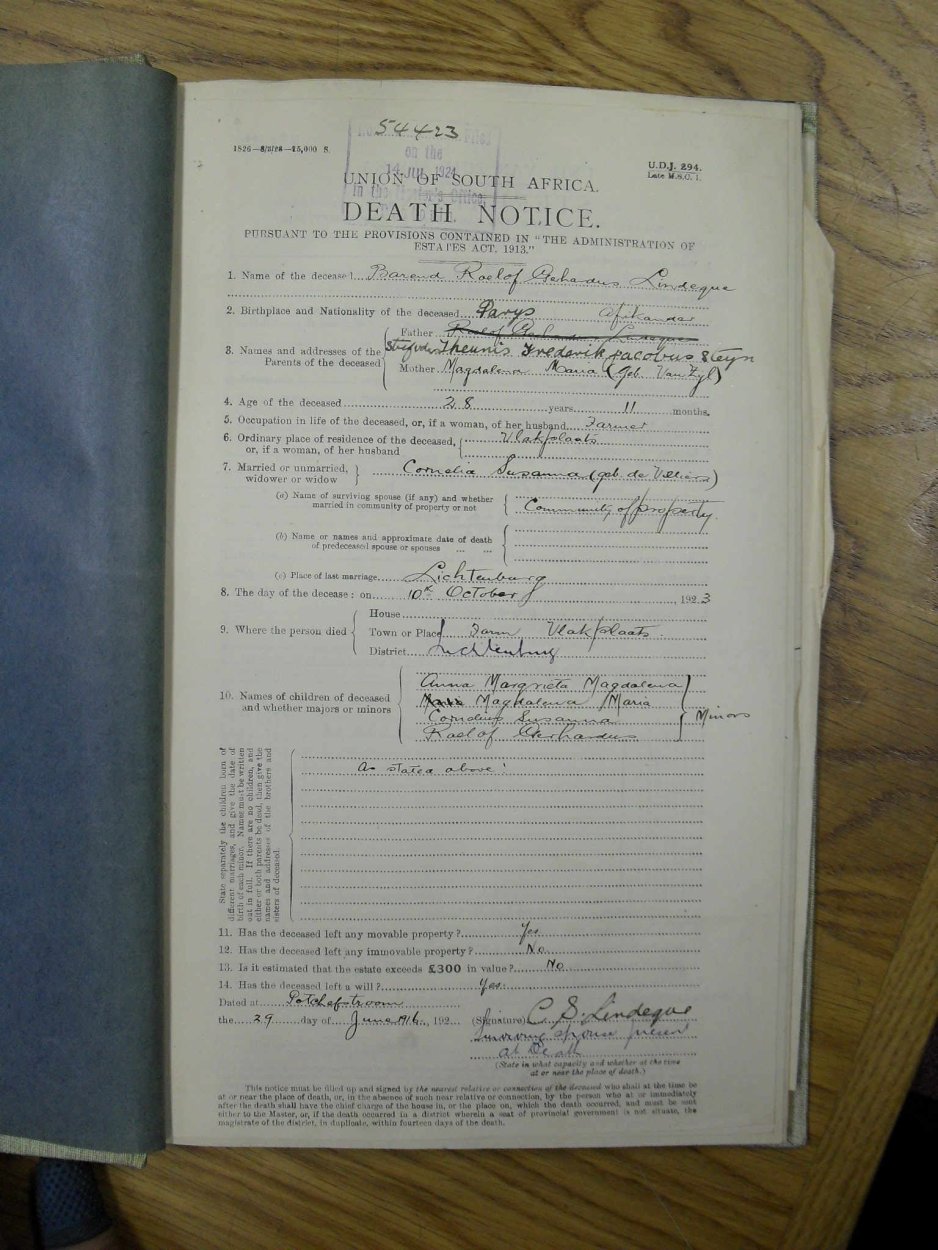 54423
1826—8/3/23—25,000 S.
U.D.J. 294.
Late M.S.C. 1.
Filed
on the
14 JUL 1924
In the Master's Office,
UNION OF SOUTH AFRICA.
DEATH NOTICE.
PURSUANT TO THE PROVISIONS CONTAINED IN "THE ADMINISTRATION OF
ESTATES ACT, 1913."
1. Name of the deceased Barend Roelof Gehardus Lindeque
2. Birthplace and Nationality of the deceased Parys Afrikander
3. Names and addresses of the Parents of the deceased
Father Roelof Lindeque
Stiefvader Theunis Frederik Jacobus Steyn
Mother Magdalena Maria (geb. Van Zyl)
4. Age of the deceased 28 years 11 months.
5. Occupation in life of the deceased, or, if a woman, of her husband Farmer
6. Ordinary place of residence of the deceased, Vlakplaats
or, if a woman, of her husband
7. Married or unmarried, widower or widow Cornelia Susanna (geb. de Villiers)
(a) Name of surviving spouse (if any) and whether
married in community of property or not Community of property.
(b) Name or names and approximate date of death
of predeceased spouse or spouses ... ...
(c) Place of last marriage Lichtenburg
8. The day of the decease: on 10th October, 1923
9. Where the person died
House
Town or Place Farm Vlakplaats
District Lichtenburg
10. Names of children of deceased
and whether majors or minors
Anna Margrieta Magdalena
Magdalena Maria
Cornelius Susanna
Roelof Gerhardus
Minors
State separately the children born of
different marriages, and give the date of
birth of each minor. Names must be written
out in full. If there are no children, and
either or both parents be dead, then give the
names and addresses of the brothers and
sisters of deceased.
As stated above.
11. Has the deceased left any movable property? Yes
12. Has the deceased left any immovable property? No
13. Is it estimated that the estate exceeds £300 in value? No
14. Has the deceased left a will? Yes.
Dated at Potchefstroom
the 29 day of June 1916, 192 (Signature) C. S. Lindeque
Surviving spouse present
at Death
(State in what capacity and whether at the time
at or near the place of death.)
This notice must be filled up and signed by the nearest relative or connection of the deceased who shall at the time be
at or near the place of death, or, in the absence of such near relative or connection, by the person who at or immediately
after the death shall have the chief charge of the house in, or the place on, which the death occurred, and must be sent
either to the Master, or, if the death occurred in a district wherein a seat of provincial government is not situate, the
magistrate of the district, in duplicate, within fourteen days of the death.